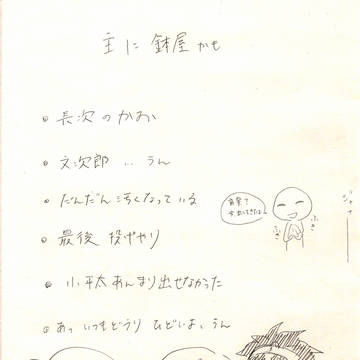 主に 鉢屋かも
• 長次のかお
• 文次郎 … うん
• だんだん汚くなっている
• 最後 投げやり
• 小平太あんまり出せなかった
• あっ いつもどうり ひどいよ、うん
ふき
ふき